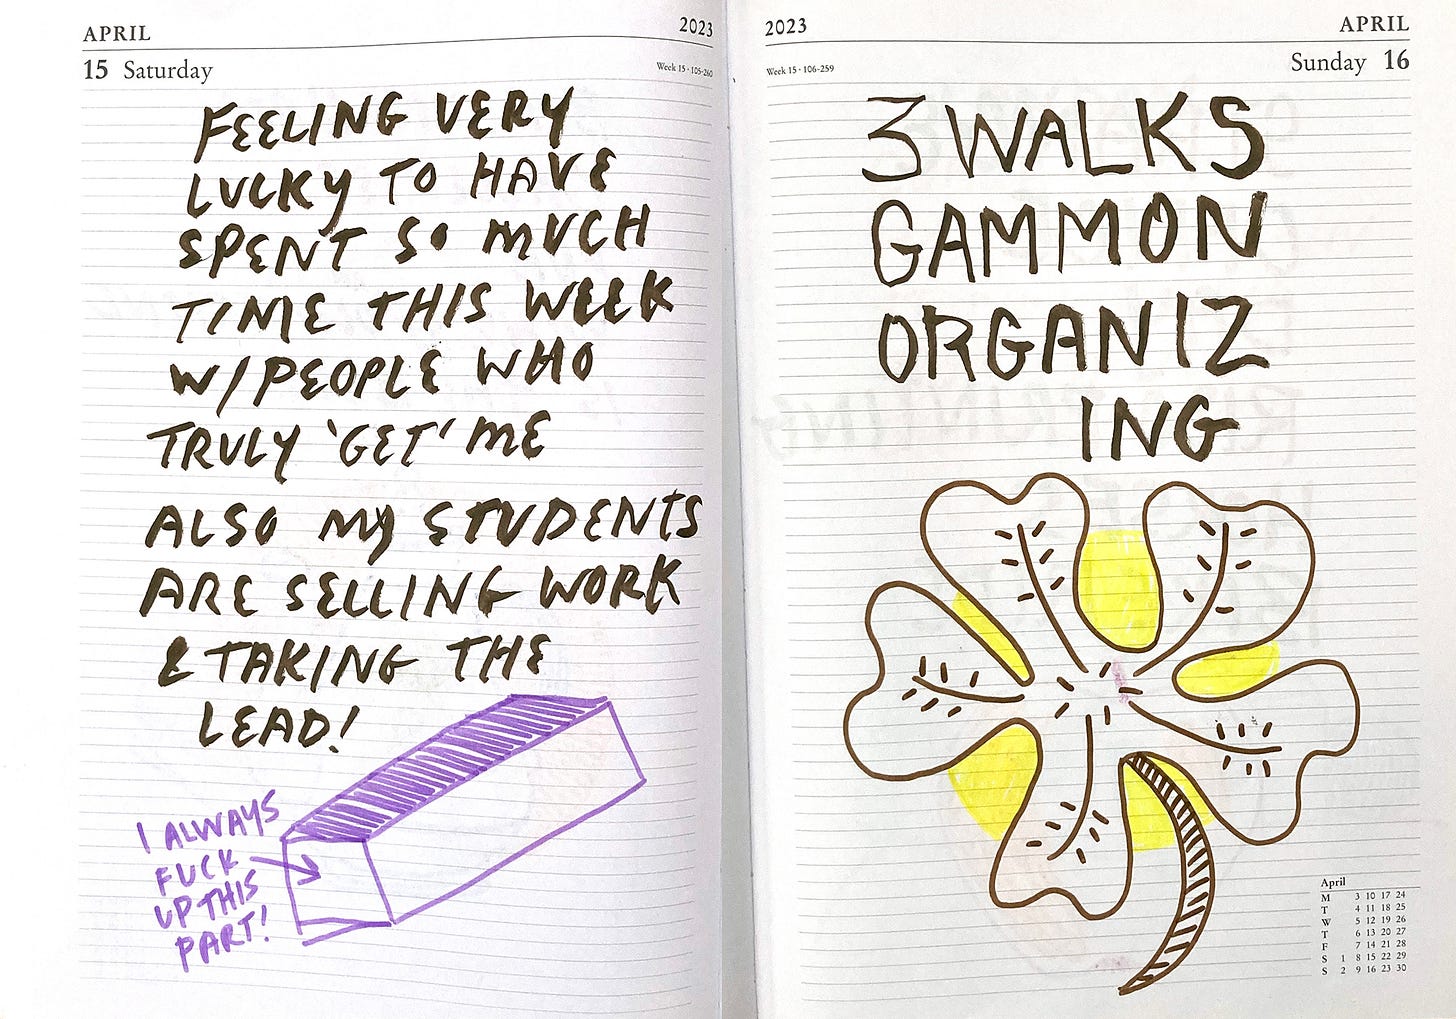 APRIL 2023
15 Saturday Week 15 · 105-260
FEELING VERY
LUCKY TO HAVE
SPENT SO MUCH
TIME THIS WEEK
W/PEOPLE WHO
TRULY 'GET' ME
ALSO MY STUDENTS
ARE SELLING WORK
& TAKING THE
LEAD!
I ALWAYS
FUCK
UP THIS
PART!
2023 APRIL
Week 15 · 106-259 Sunday 16
3 WALKS
GAMMON
ORGANIZ
ING
April
M 3 10 17 24
T 4 11 18 25
W 5 12 19 26
T 6 13 20 27
F 7 14 21 28
S 1 8 15 22 29
S 2 9 16 23 30